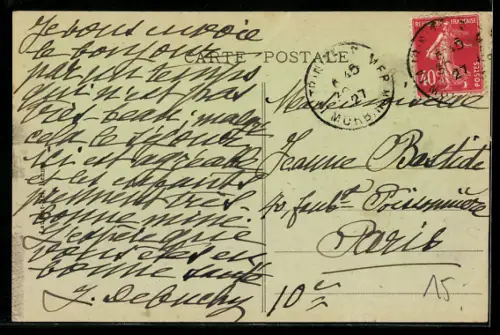 Je vous envoie
le bonjour
par un temps
qui n'est pas
très beau, malgré
cela le séjour
ici est agréable
et les enfants
prennent très
bonne mine.
J'espère que
vous êtes en
bonne santé
J. Debuchy
CARTE POSTALE
MER
MORBIHAN
6 45
27
RÉPUBLIQUE FRANÇAISE
40c
POSTES
Mademoiselle
Jeanne Bastide
faubg Poissonnière
Paris
10e
15-